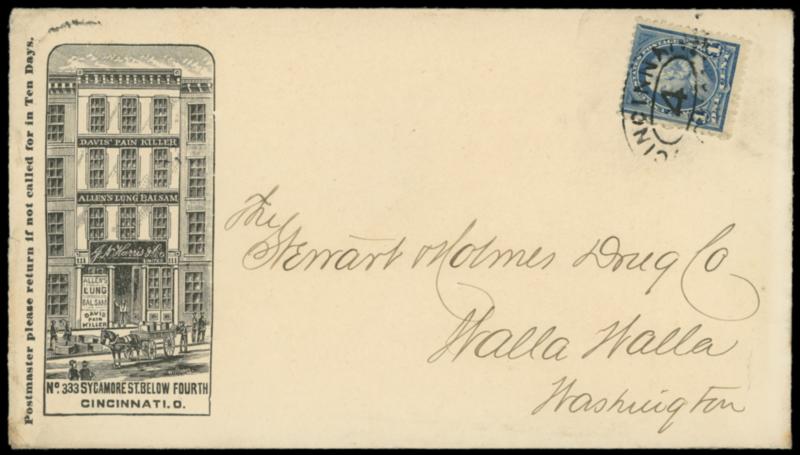 Postmaster please return if not called for in Ten Days.
DAVIS' PAIN KILLER
ALLEN'S LUNG BALSAM
J.N. Harris & Co
LIMITED
ALLEN'S
LUNG
BALSAM
DAVIS
PAIN
KILLER
No. 333 SYCAMORE ST. BELOW FOURTH
CINCINNATI. O.
CINCINNATI
4
The
Stewart & Holmes Drug Co
Walla Walla
Washington